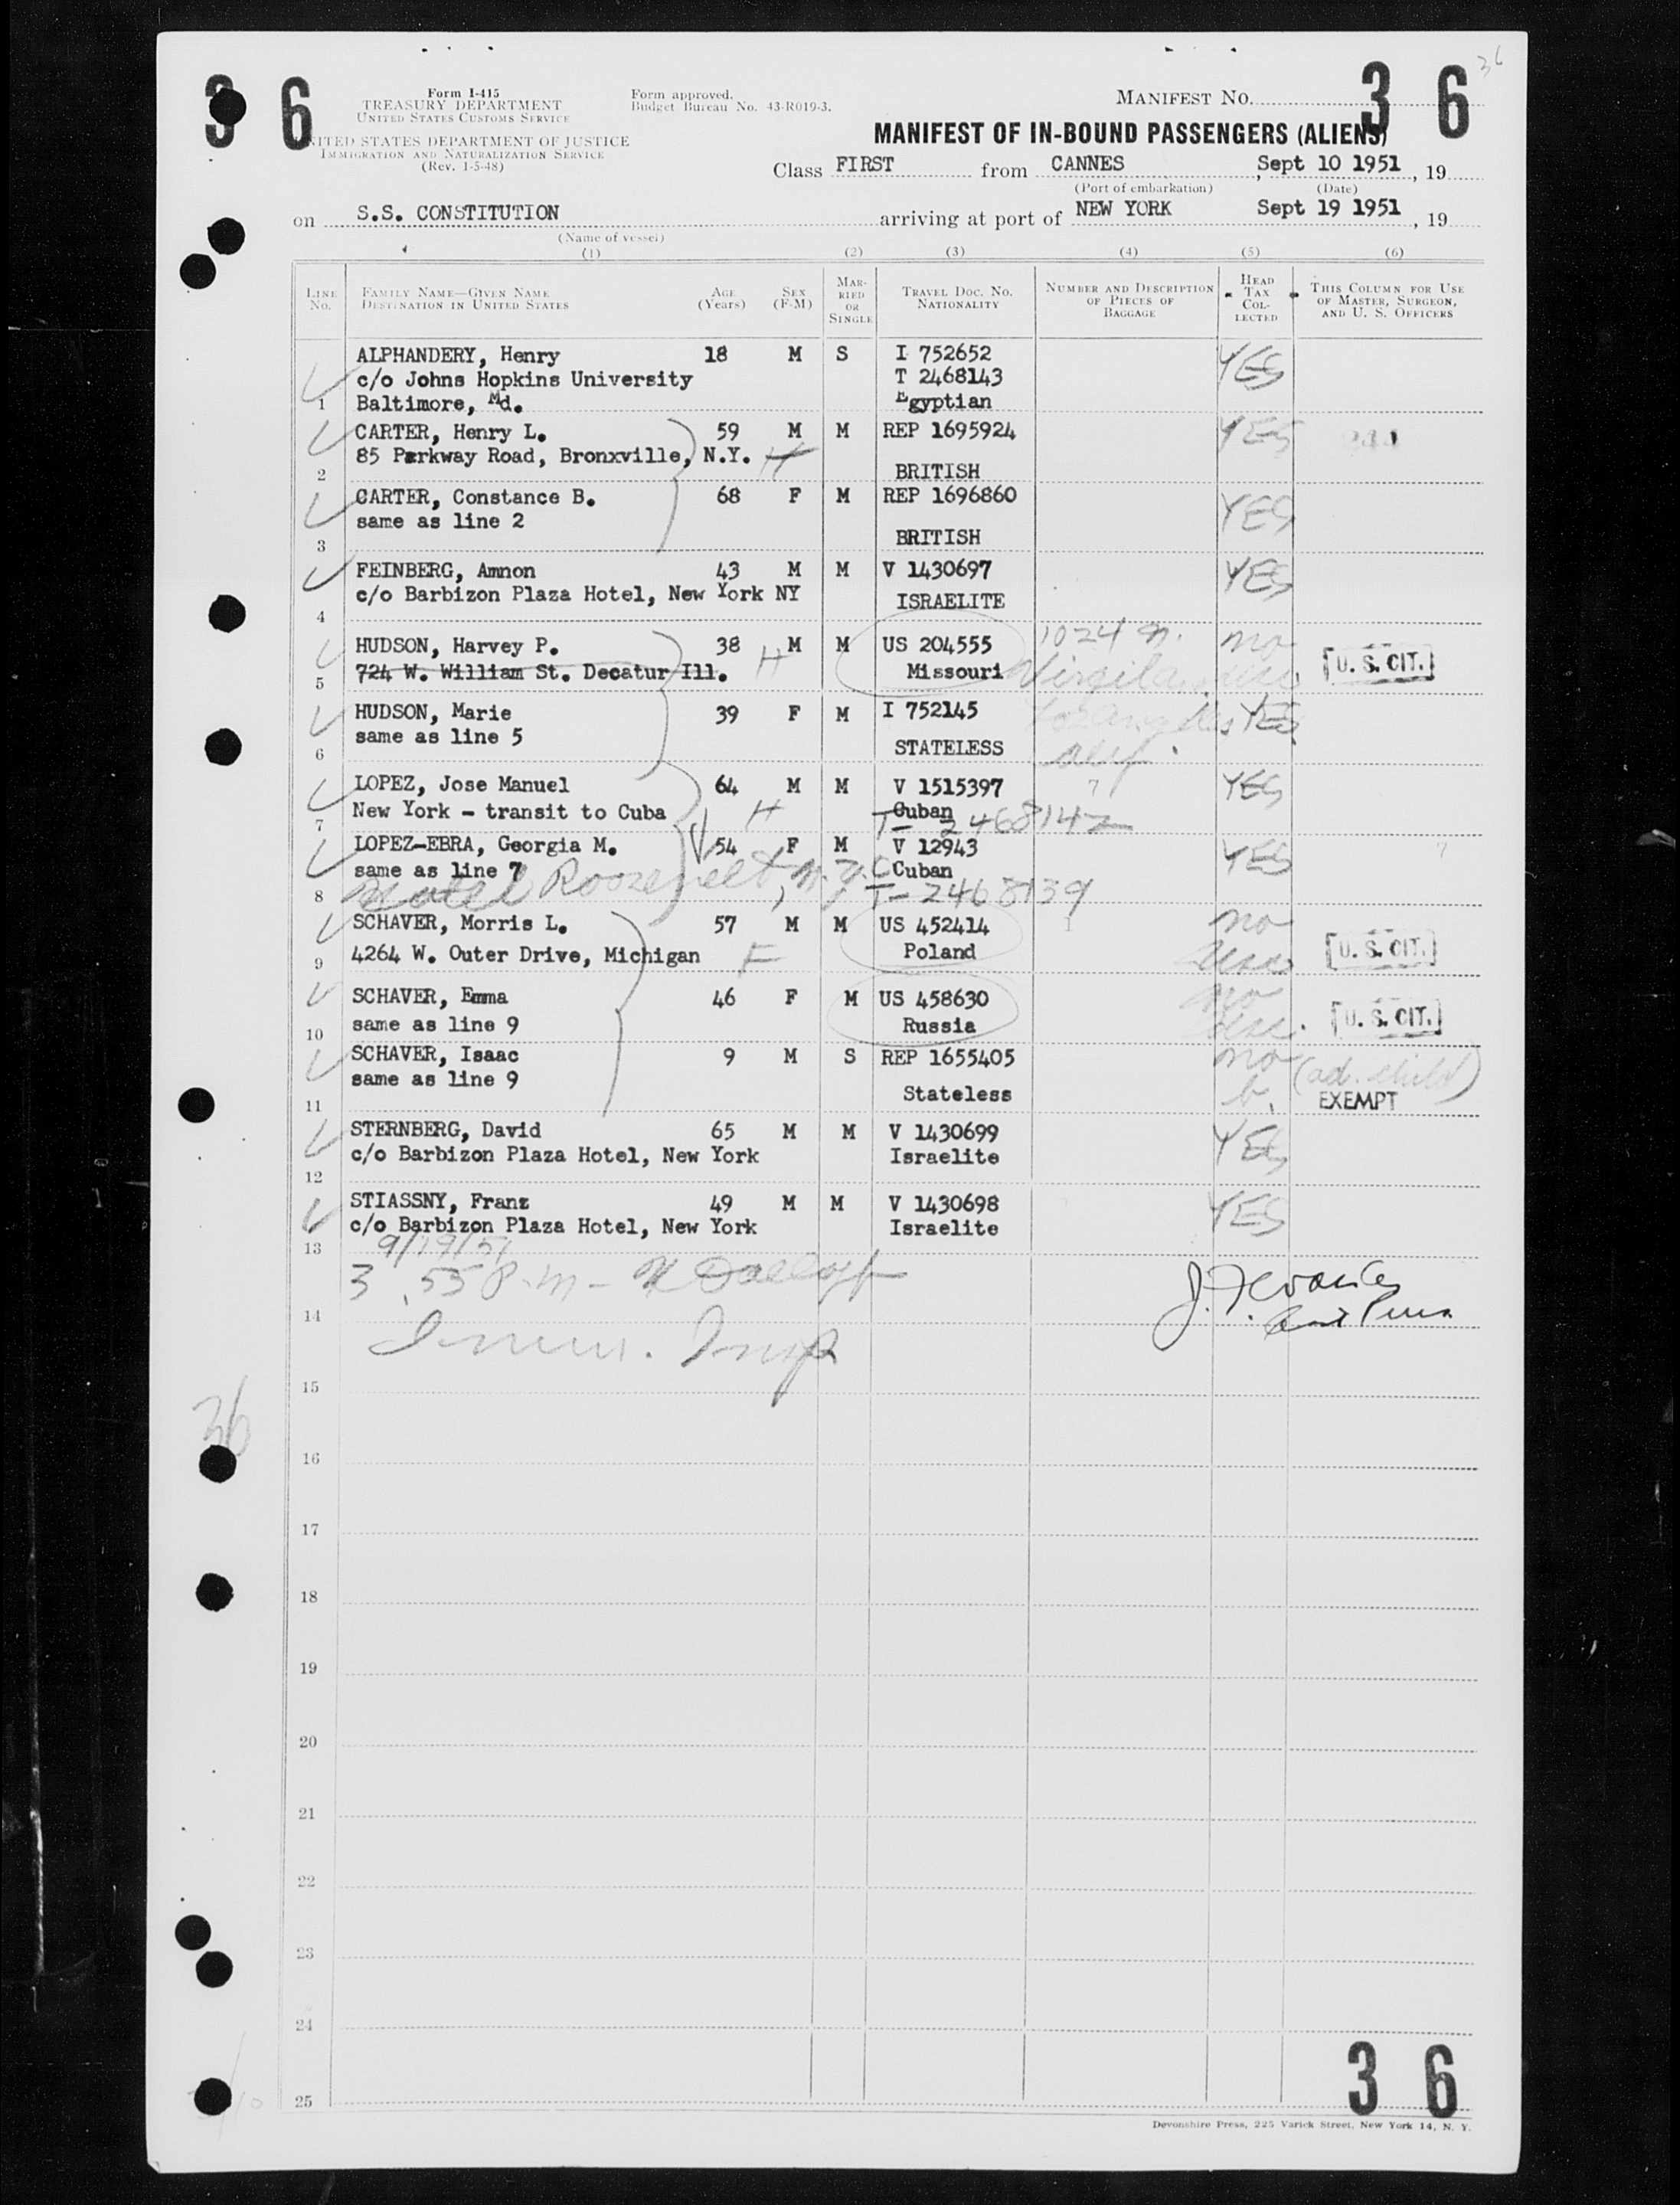 36
3 6
Form I-415
TREASURY DEPARTMENT
UNITED STATES CUSTOMS SERVICE
UNITED STATES DEPARTMENT OF JUSTICE
IMMIGRATION AND NATURALIZATION SERVICE
(Rev. 1-5-48)
Form approved.
Budget Bureau No. 43-R019-3.
MANIFEST NO. 3 6
MANIFEST OF IN-BOUND PASSENGERS (ALIENS)
Class FIRST from CANNES, Sept 10 1951, 19
(Port of embarkation) (Date)
on S.S. CONSTITUTION arriving at port of NEW YORK Sept 19 1951, 19
(Name of vessel)
(1) (2) (3) (4) (5) (6)
LINE No. FAMILY NAME—GIVEN NAME DESTINATION IN UNITED STATES AGE (Years) SEX (F-M) MARRIED OR SINGLE TRAVEL DOC. NO. NATIONALITY NUMBER AND DESCRIPTION OF PIECES OF BAGGAGE HEAD TAX COLLECTED THIS COLUMN FOR USE OF MASTER, SURGEON, AND U. S. OFFICERS
ALPHANDERY, Henry 18 M S I 752652 YES
c/o Johns Hopkins University T 2468143
1 Baltimore, Md. Egyptian
CARTER, Henry L. 59 M M REP 1695924 YES
85 Parkway Road, Bronxville, N.Y. H
2 BRITISH
CARTER, Constance B. 68 F M REP 1696860 YES
same as line 2
3 BRITISH
FEINBERG, Amnon 43 M M V 1430697 YES
c/o Barbizon Plaza Hotel, New York NY ISRAELITE
4
HUDSON, Harvey P. 38 M M US 204555 1024 N. no
5 724 W. William St. Decatur Ill. H Missouri Virgil U. S. CIT.
HUDSON, Marie 39 F M I 752145 Los Angeles YES
same as line 5
6 STATELESS
LOPEZ, Jose Manuel 64 M M V 1515397 7 YES
New York - transit to Cuba H Cuban
7 T- 2468142
LOPEZ-EBRA, Georgia M. 54 F M V 12943 YES 7
same as line 7 Cuban
8 Hotel Roosevelt, N.Y.C T-2468139
SCHAVER, Morris L. 57 M M US 452414 no
9 4264 W. Outer Drive, Michigan F Poland U. S. CIT.
SCHAVER, Emma 46 F M US 458630 no
10 same as line 9 Russia U. S. CIT.
SCHAVER, Isaac 9 M S REP 1655405 no (ad. child)
same as line 9
11 Stateless b. EXEMPT
STERNBERG, David 65 M M V 1430699 YES
c/o Barbizon Plaza Hotel, New York Israelite
12
STIASSNY, Franz 49 M M V 1430698 YES
c/o Barbizon Plaza Hotel, New York Israelite
13 9/19/51
3.55 P.m -
14
Imm. Insp
15
36
16
17
18
19
20
21
22
23
24
25
3 6
Devonshire Press, 225 Varick Street, New York 14, N. Y.